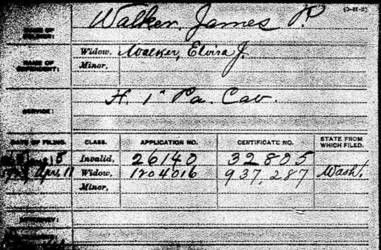 (3-312)
NAME OF SOLDIER: Walker, James P.
NAME OF DEPENDENT: Widow, Walker, Elvira J.
Minor,
SERVICE: H. 1" Pa. Cav.
DATE OF FILING. CLASS. APPLICATION NO. CERTIFICATE NO. STATE FROM WHICH FILED.
Invalid, 26140 32805
Apr. 11 Widow, 1204016 937,287 Wash.
Minor,